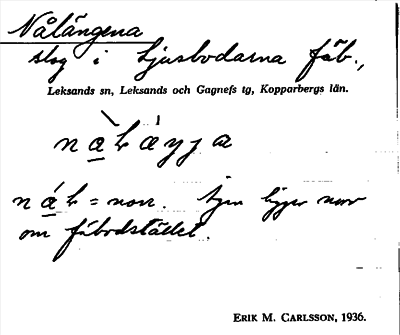 Nålängena
slog i Ljusbodarna fäb.,
Leksands sn, Leksands och Gagnefs tg, Kopparbergs län.
næ̀ƚ = norr. Ägen ligger norr
om fäbodstället.
ERIK M. CARLSSON, 1936.